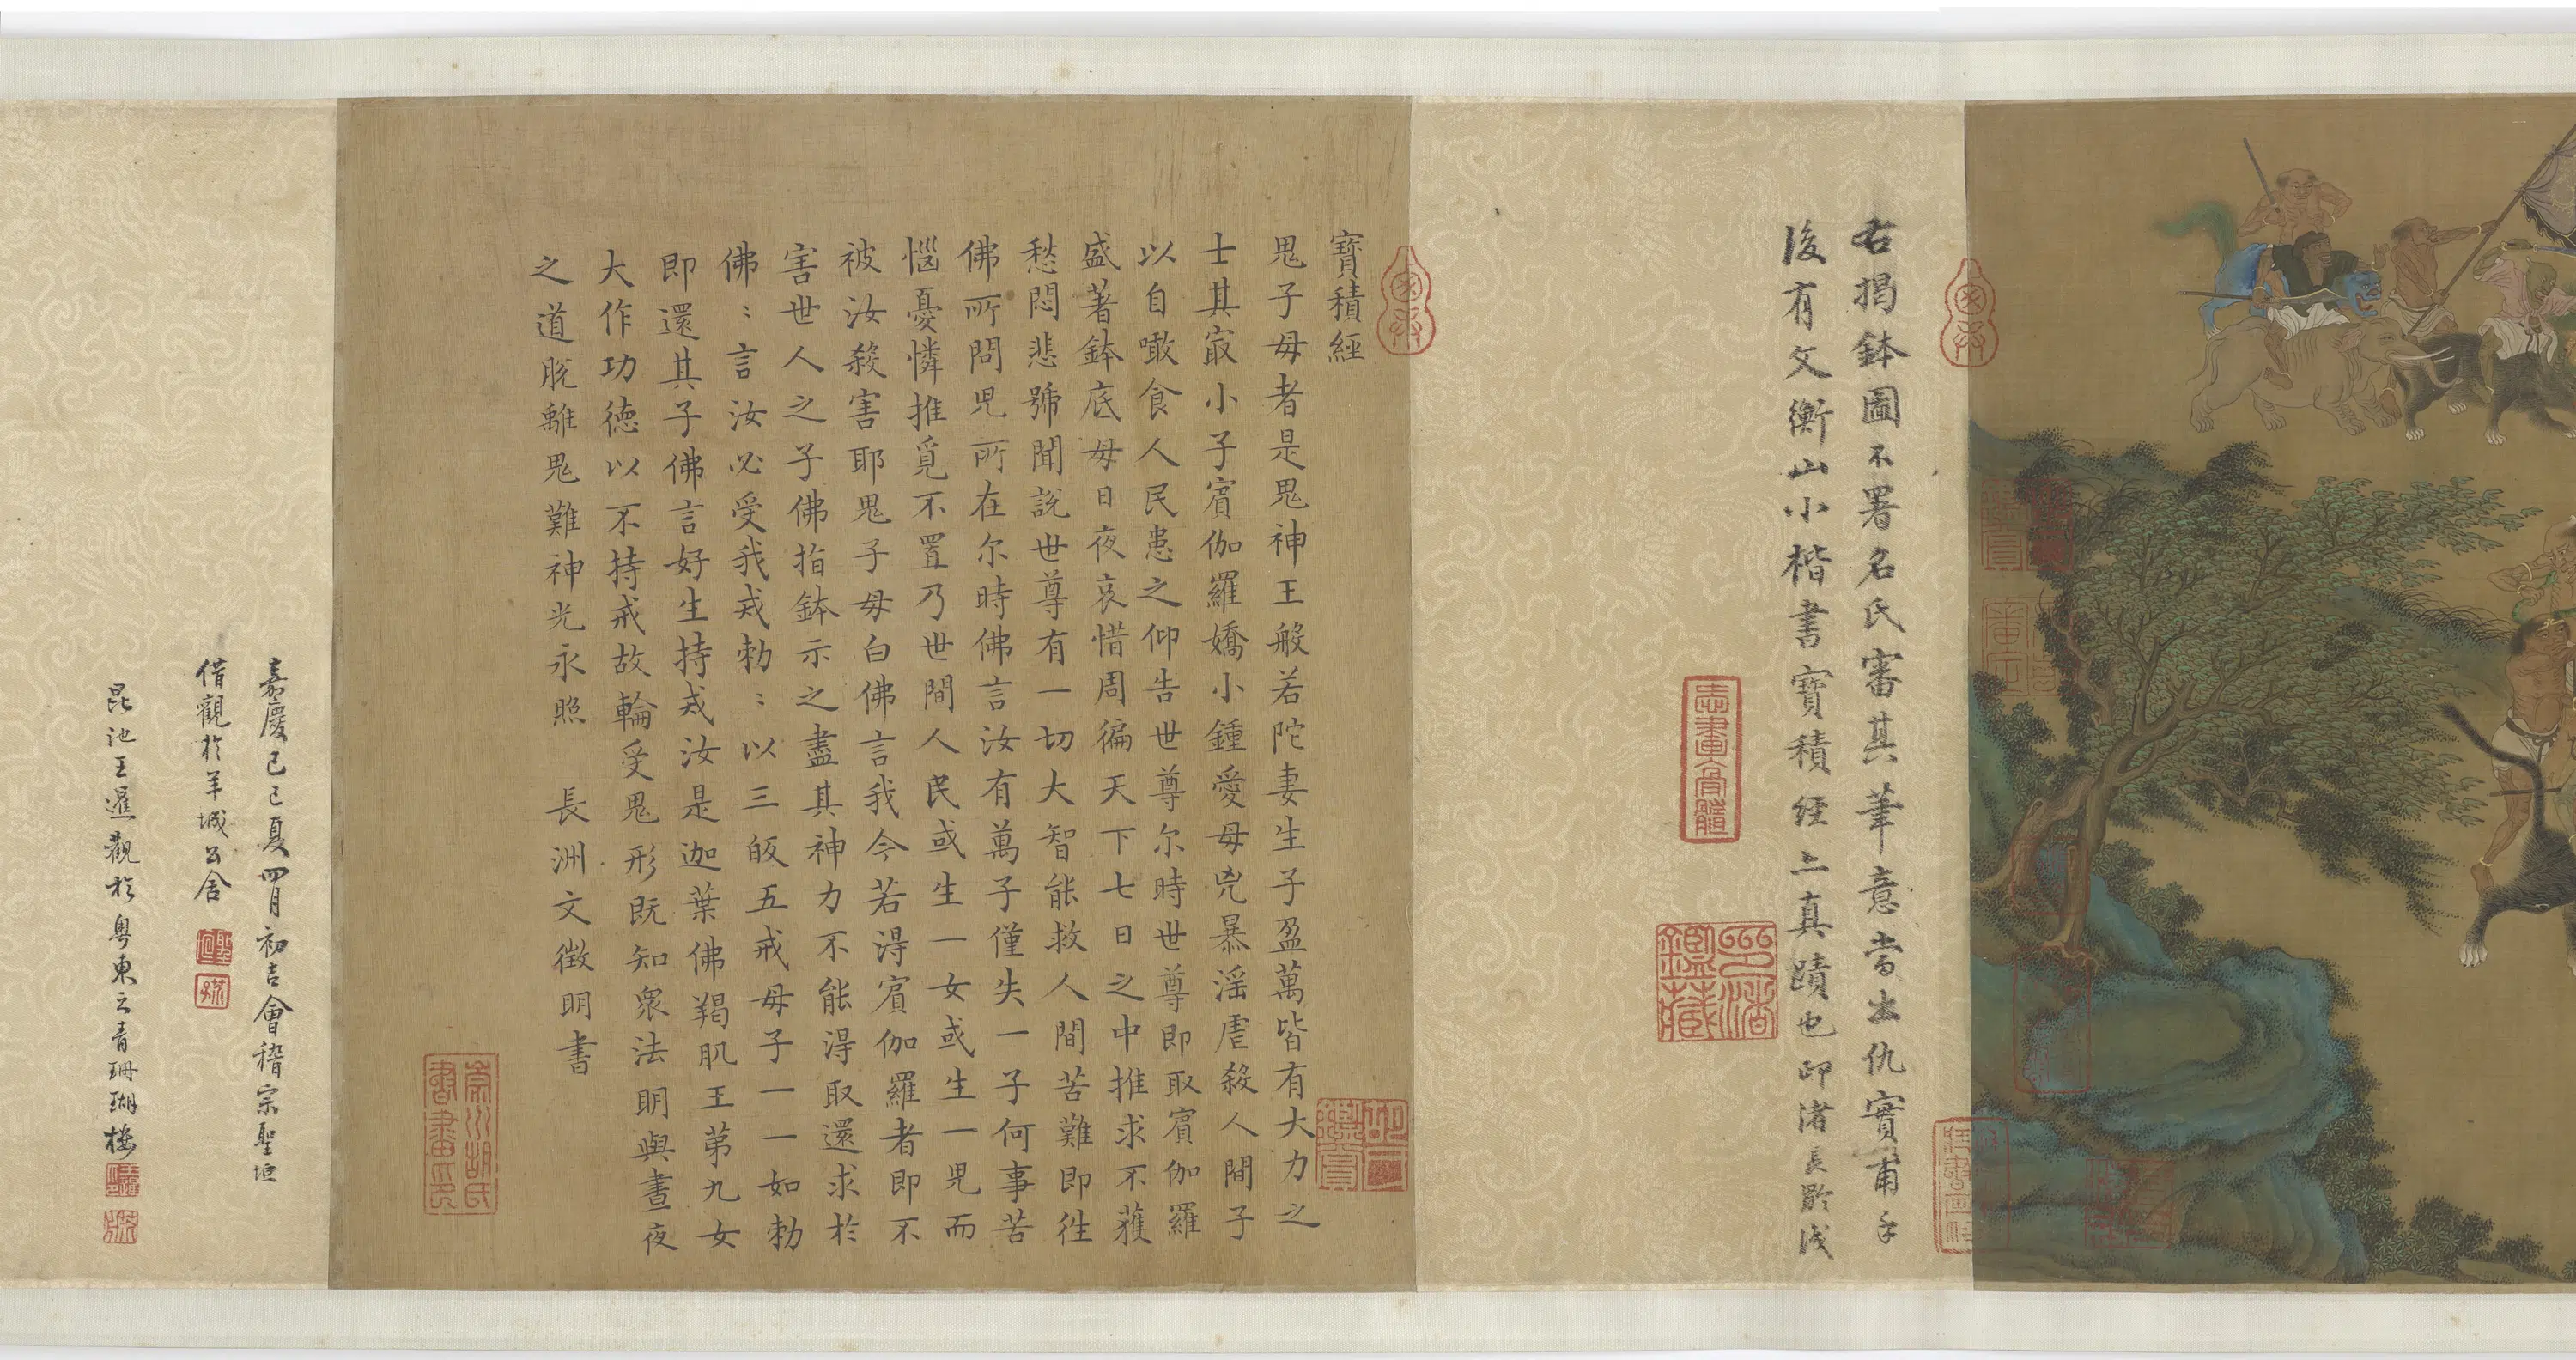 右揭鉢圖不署名氏審其筆意當出仇實甫手
後有文衡山小楷書寶積經亦真蹟也印渚長黔識
寶積經
鬼子母者是鬼神王般若陀妻生子盈萬皆有大力之
士其㝡小子賓伽羅嬌小鍾愛母兇暴淫虐殺人間子
以自噉食人民患之仰告世尊尔時世尊即取賓伽羅
盛著鉢底母日夜哀惜周徧天下七日之中推求不獲
愁悶悲號聞說世尊有一切大智能救人間苦難即徃
佛所問兒所在尔時佛言汝有萬子僅失一子何事苦
惱憂憐推覓不置乃世間人民或生一女或生一兒而
被汝殺害耶鬼子母白佛言我今若得賓伽羅者即不
害世人之子佛指鉢示之盡其神力不能得取還求於
佛〻言汝必受我戒勅〻以三皈五戒母子一一如勅
即還其子佛言好生持戒汝是迦葉佛羯肌王苐九女
大作功德以不持戒故輪受鬼形既知眾法明與晝夜
之道脫離鬼難神光永照 長洲文徵明書
嘉慶己巳夏四月初吉會稽宗聖垣
借觀於羊城公舍
昆池王暹觀於粵東之青珊瑚樓
志畫膏髓
印渚鑑藏
崇川胡氏書畫印